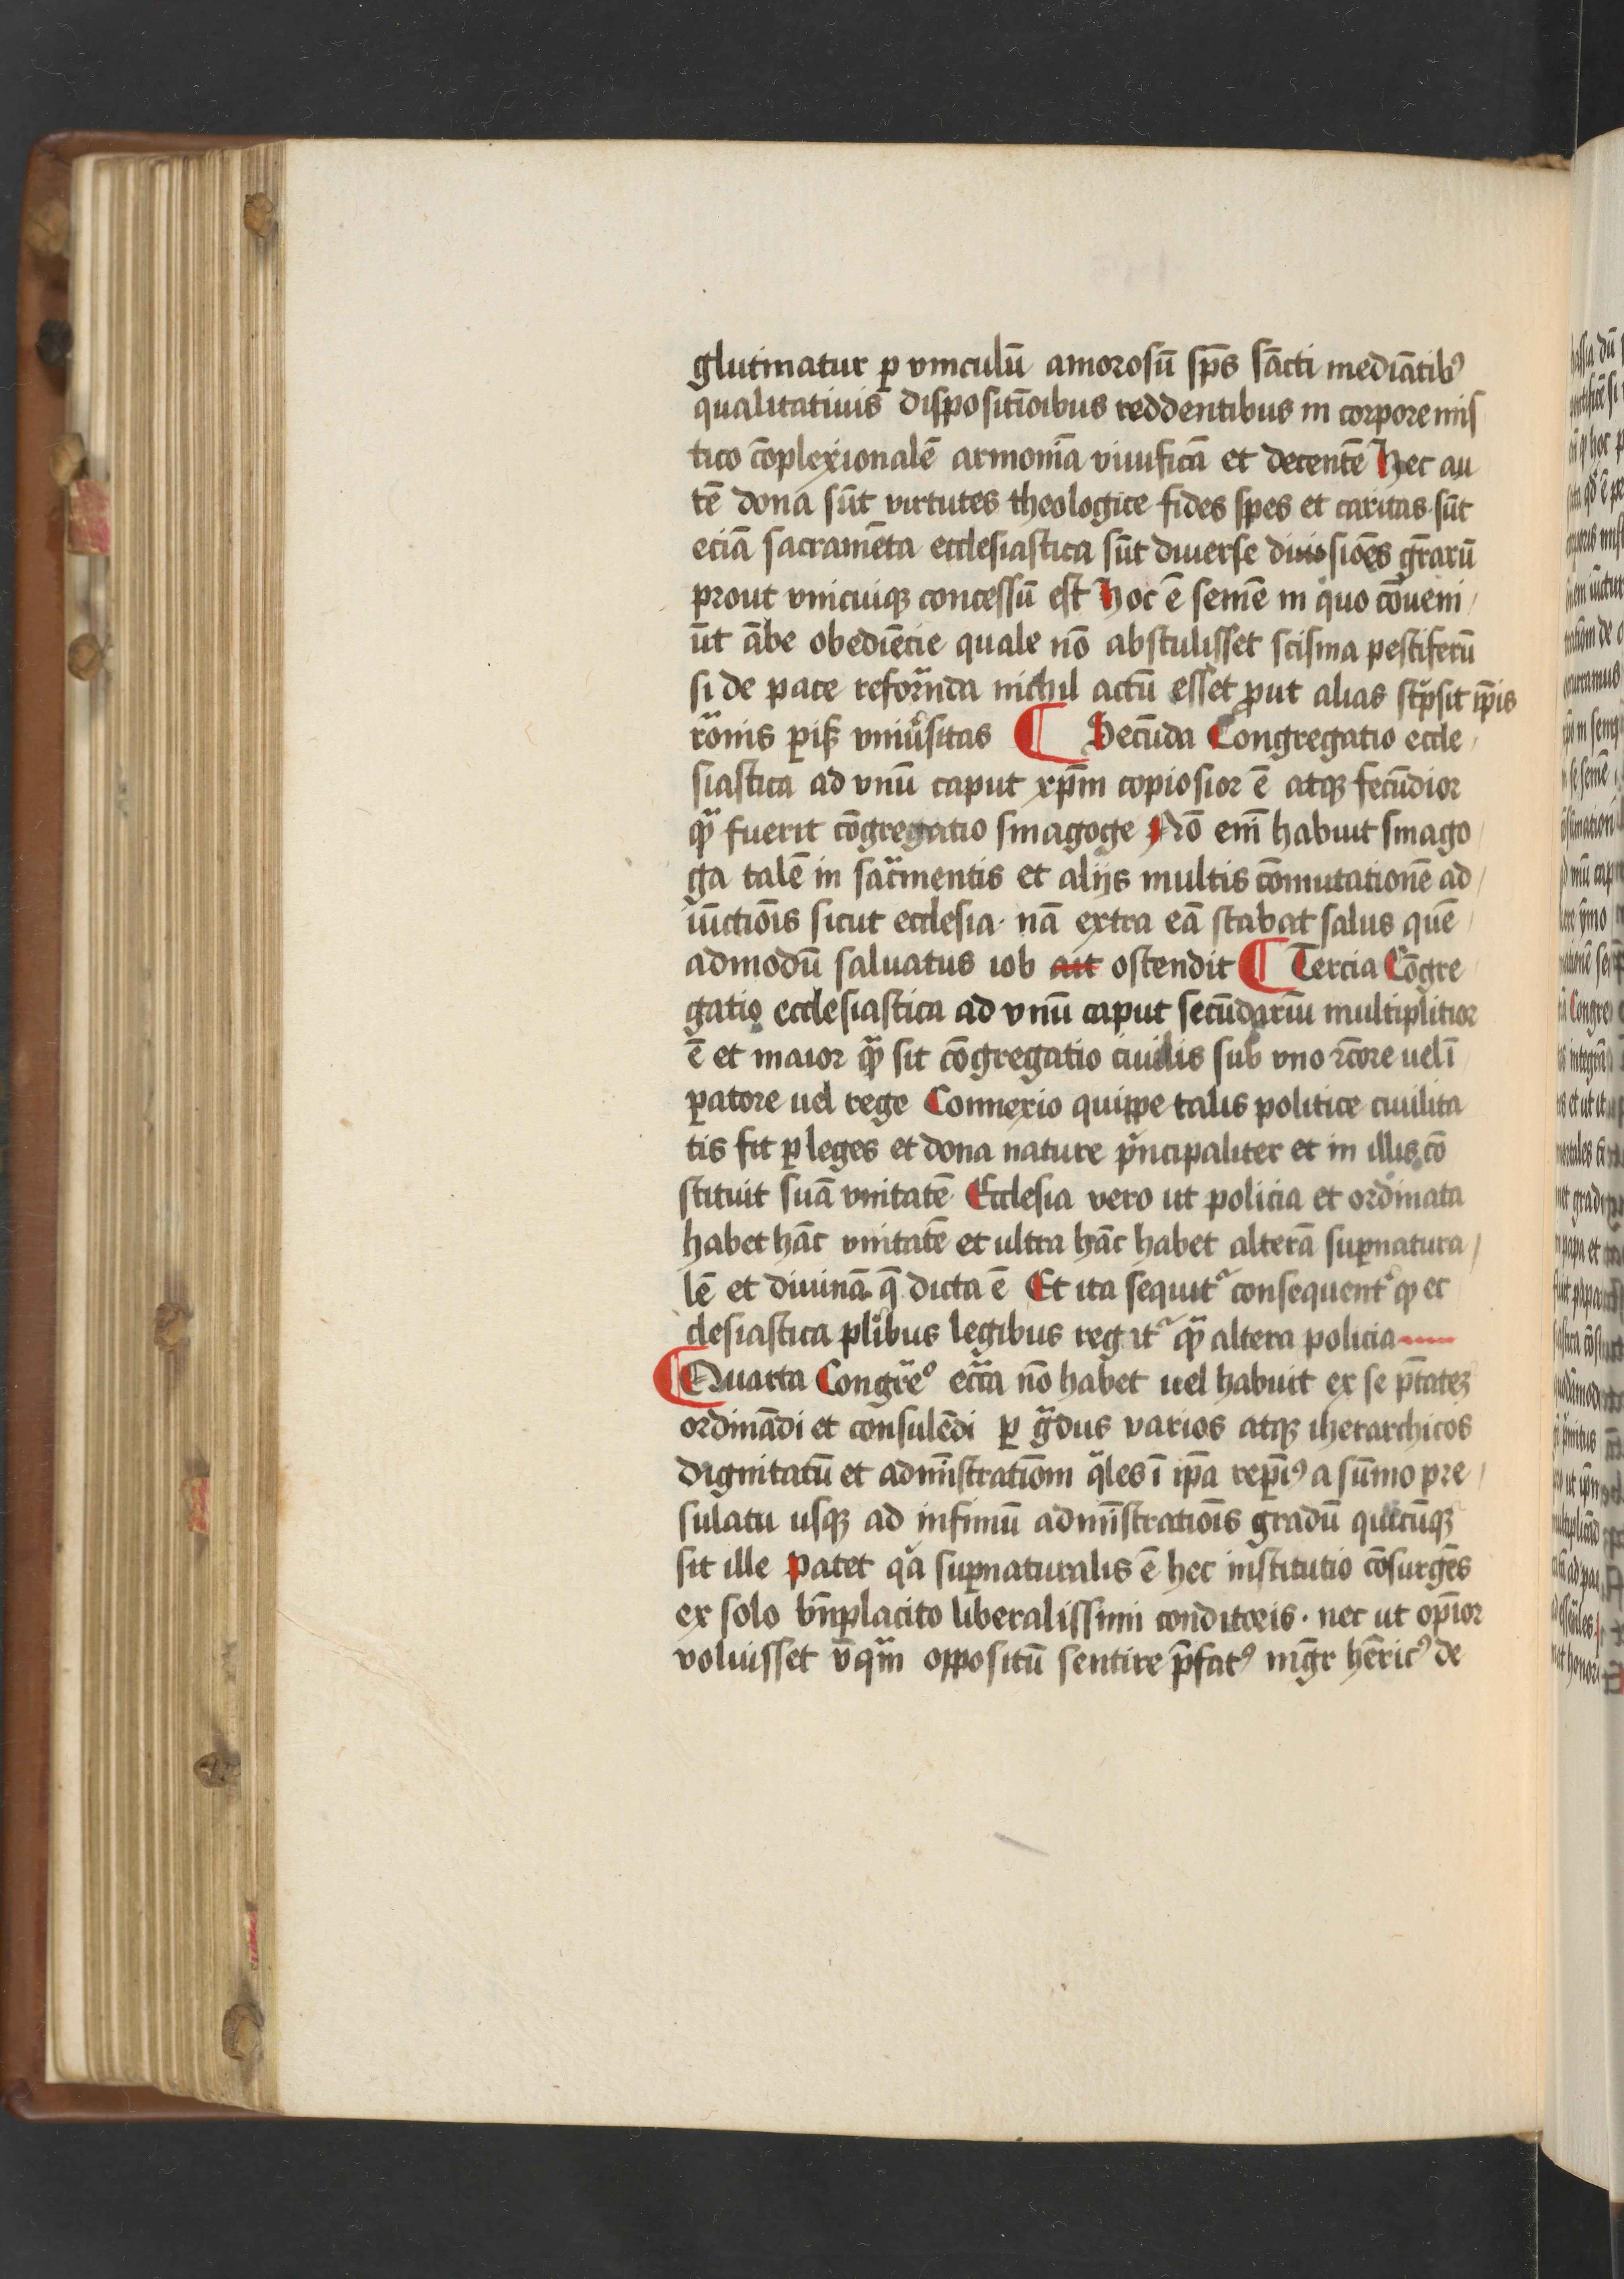 glutinatur ꝑ vinculū amorosū sp̄s sācti mediātibꝰ
qualitatiuis dispositiōibus reddentibus in corpore mis
tico cōplexionalē armoniā viuificā et decentē Hec au
tē dona sūt virtutes theologice fides spes et caritas sūt
eciā sacramēta ecclesiastica sūt diuerse diuisiōes gr̄arū
prout vnicuiqꝫ concessū est Hoc ē semē in quo cōueni
ūt ābe obediēcie quale nō abstulisset scisma pestiferū
si de pace reformāda nichil actū esset ꝓut alias
vniu͛sitas ¶ Secūda Congregatio eccle
siastica ad vnū caput xp̄m copiosior ē atqꝫ fecūdior
qᷓ fuerit cōgregatio sinagoge Nō enī habuit sinago
ga talē in sacᷓmentis et alijs multis cōmutationē ad
iūctiōis sicut ecclesia · nā extra eā stabat salus quē
admodū saluatus iob ait ostendit ¶ Tercia Cōgre
gatio ecclesiastica ad vnū caput secūdariū multiplitior
ē et maior qᷓ sit cōgregatio ciuilis sub vno rc̄ore uel ī
ꝑatore uel rege Connexio quippe talis politice ciuilita
tis fit ꝑ leges et dona nature pͥncipaliter et in illis cō
stituit suā vnitatē Ecclesia vero ut policia et ordinata
habet hāc vnitatē et ultra hāc habet alterā suꝑnatura
lē et diuinā q̄ dicta ē Et ita sequit᷑ consequent͛ ꝙ ec
clesiastica plͥibus legibus regit᷑ qᷓ altera policia
¶ Quarta Congre᷒ᵒ ecc̄a nō habet uel habuit ex se ptātez
ordinādi et consulēdi ꝑ gᷓdus varios atqꝫ iherarchicos
dignitatū et adminīstratiōm qᷓles ī ip̄a reꝑiꝰ a sūmo pre
sulatu usqꝫ ad infimū adminīstratiōis gradū quicūqꝫ
sit ille Patet qᷓ suꝑnaturalis ē hec institutio cōsurgēs
ex solo bn̄placito liberalissimi conditoris · nec ut opīor
voluisset vn̄qᷓm oppositū sentire p̄fatꝰ mgr̄ hēricꝰ de